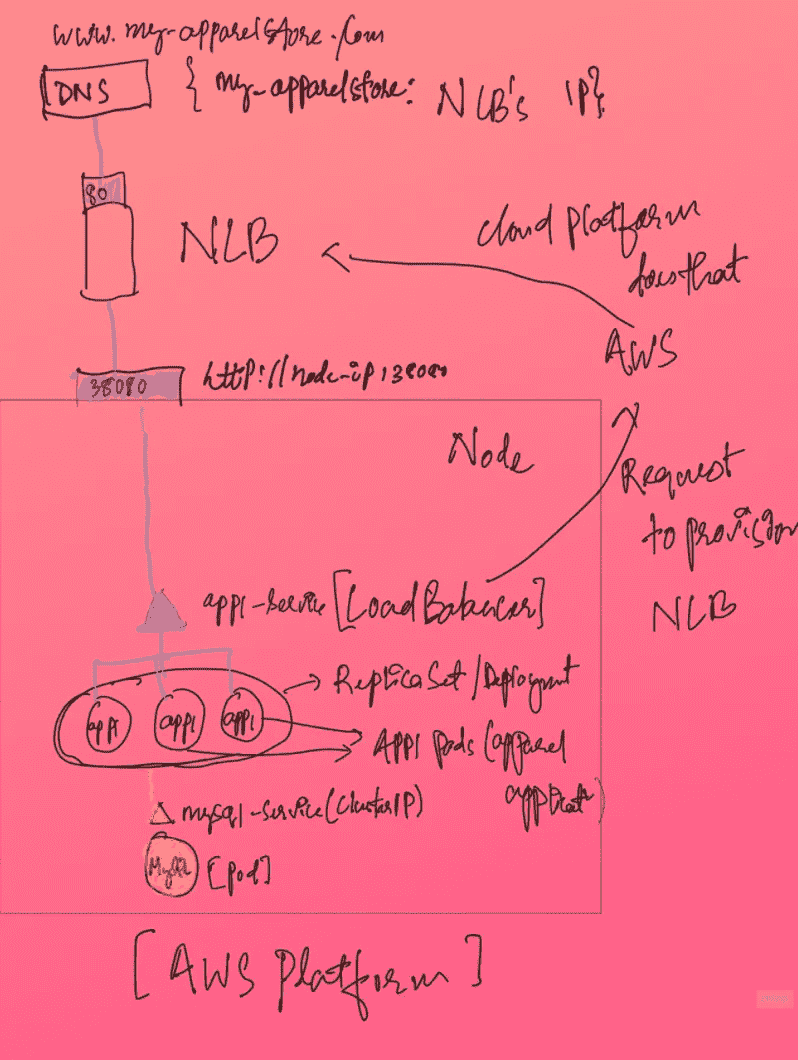 www.my-apparelstore.com
DNS
{ my-apparelstore: NLB's IP}
80
NLB
cloud platform
does that
AWS
38080
http://node-ip:38080
Node
Request
to provision
NLB
app1-service [LoadBalancer]
ReplicaSet/Deployment
app1 app1 app1
App1 pods (apparel
application)
mysql-service(ClusterIP)
MySQL [pod]
[AWS platform]